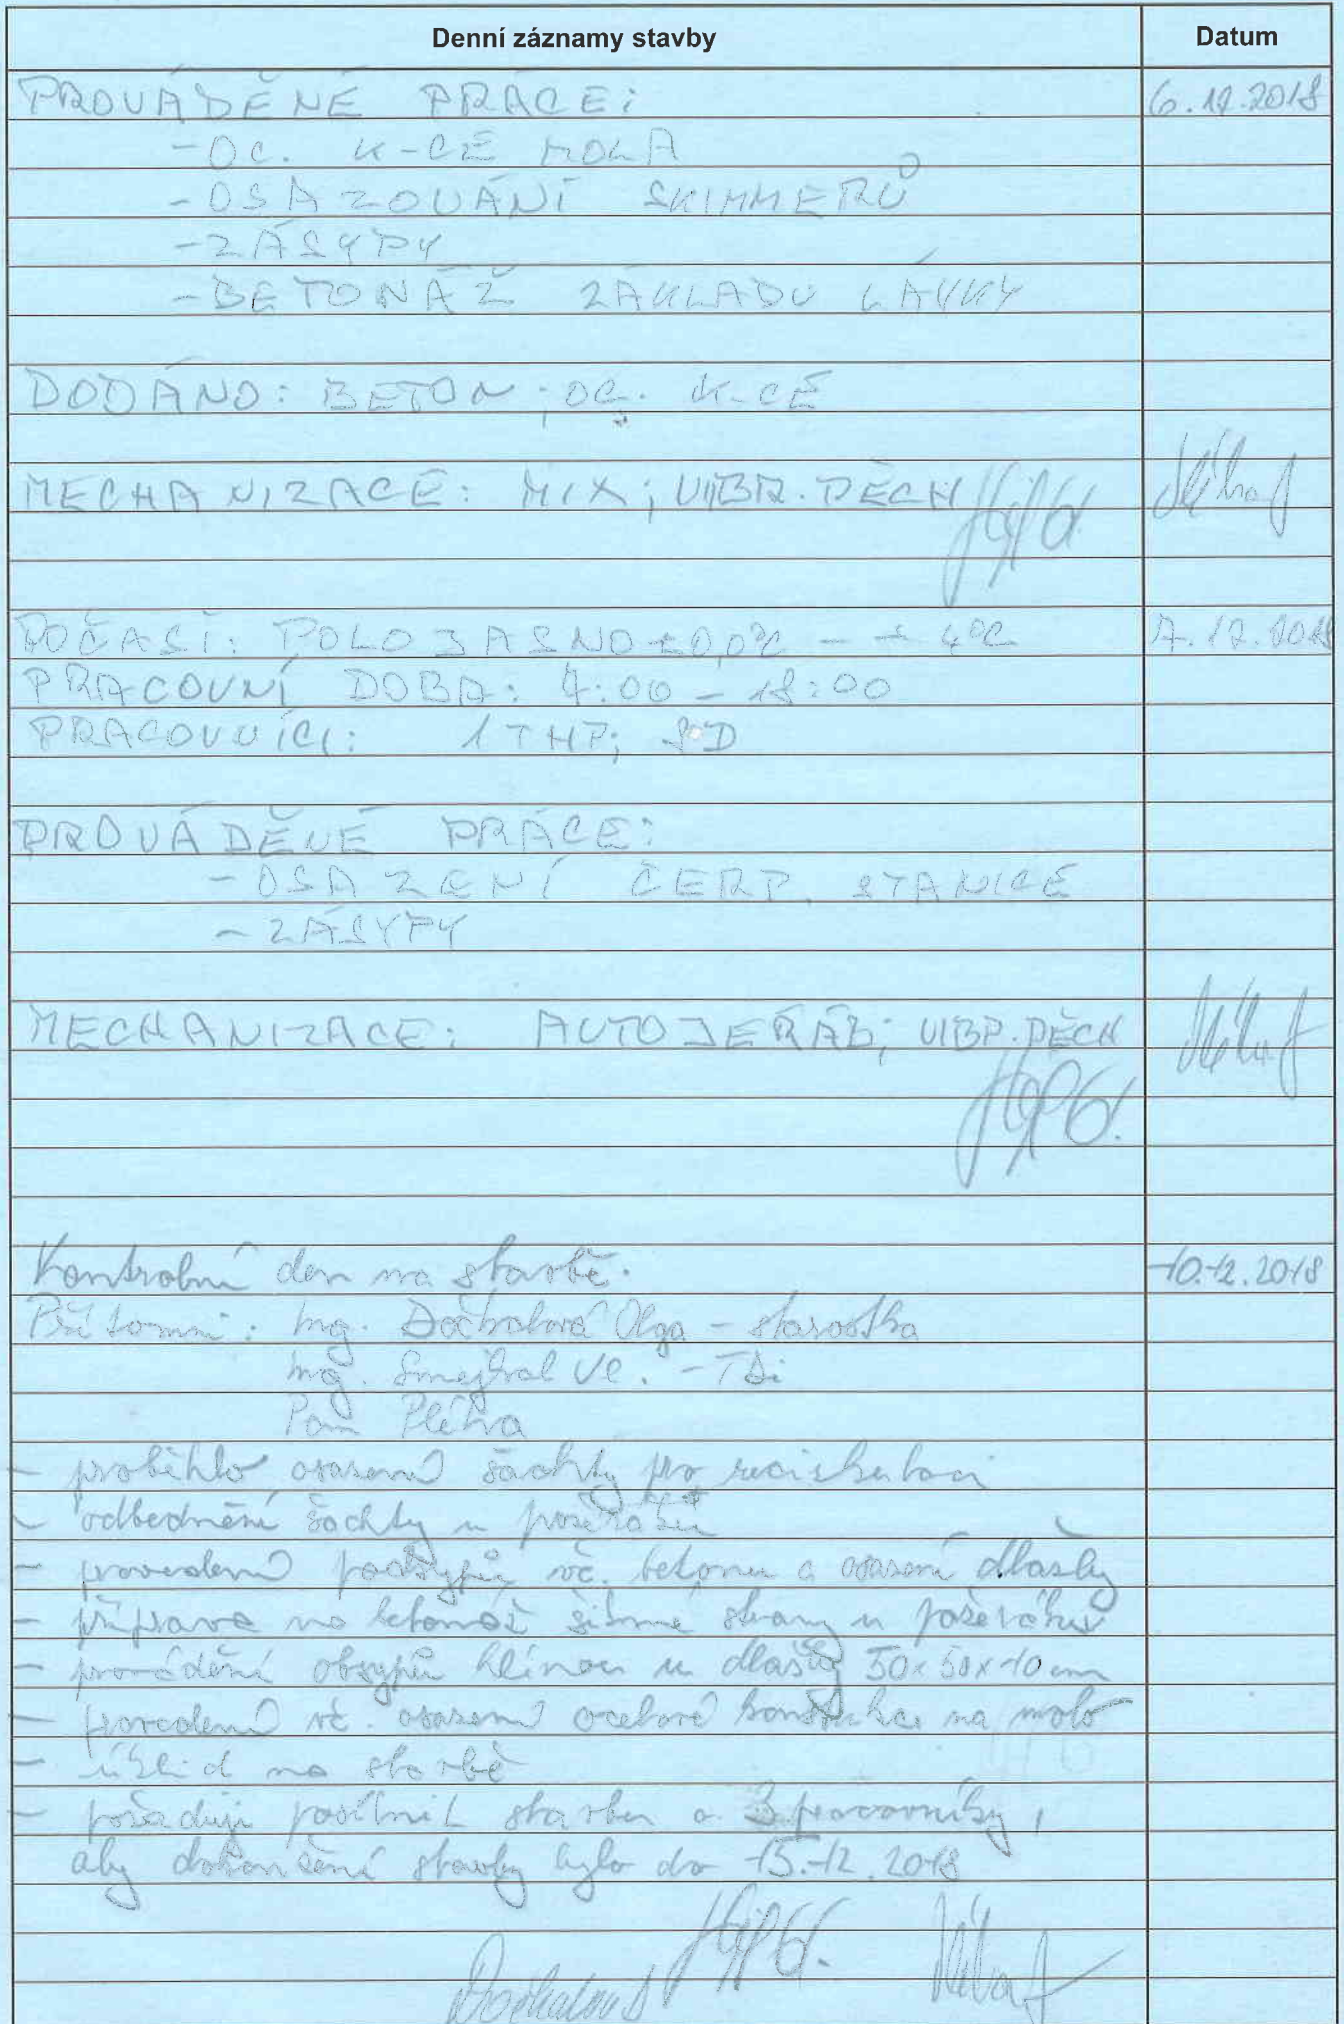 Denní záznamy stavby Datum
PROVÁDĚNÉ PRÁCE: 6.12.2018
- OC. K-CE MOLA
- OSAZOVÁNÍ SKIMMERŮ
- ZÁSYPY
- BETONÁŽ ZÁKLADU LÁVKY
DODÁNO: BETON; OC. K-CE
MECHANIZACE: MIX; VIBR. PĚCH
POČASÍ: POLOJASNO ±0,0°C - + 4°C 7.12.2018
PRACOVNÍ DOBA: 7:00 - 18:00
PRACOVNÍCI: 1 THP; D
PROVÁDĚNÉ PRÁCE:
- OSAZENÍ ČERP. STANICE
- ZÁSYPY
MECHANIZACE: AUTOJEŘÁB; VIBR. PĚCH
Kontrolní den na stavbě. 10.12.2018
Přítomni: Ing. Dočkalová Olga - starostka
Ing. Smejkal Vl. - TDi
Pan Plétva
- proběhlo osazení šachty pro recirkulaci
- odbednění šachty u požeráku
- provedení podsypů vč. betonu a osazení dlažby
- příprava na betonáž šikmé strany u požeráku
- provádění obsypů hlínou u dlažby 50x50x10 cm
- provedení vč. osazení ocelové konstrukce na molo
- úklid na stavbě
- požaduji posílnit stavbu o 3 pracovníky,
aby dokončení stavby bylo do 15.12.2018